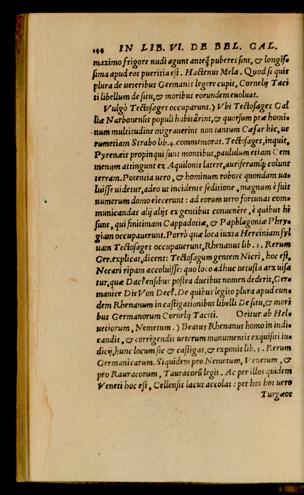 144 IN LIB. VI. DE BEL. GAL.
maximo frigore nudi agunt anteq̃ puberes sint, & longis-
sima apud eos pueritia est. Hactenus Mela. Quod si quis
plura de ueteribus Germanis legere cupit, Cornelij Taci
ti libellum de situ, & moribus eorundem euoluat.
Vulgò Tectosages occuparunt.) Vbi Tectosages Gal
liæ Narbonensis populi habitârint, & quorsum præ homi-
num multitudine migrauerint non tantum Cæsar hic, ue-
rumetiam Strabo lib. 4. commemorat. Tectosages, inquit,
Pyrenæis propinqui sunt montibus, paululum etiam Cem
menum attingunt ex Aquilonis latere, auriferamq; colunt
terram. Potentia uero, & hominum robore quondam ua-
luisse uidetur, adeo ut incidente seditione, magnum è suis
numerum domo eiecerunt: ad eorum uero fortunas com-
municandas alij alijs ex gentibus conuenêre, è quibus hi
sunt, qui finitimam Cappadociæ, & Paphlagoniæ Phry-
giam occupauerunt. Porrò quæ loca iuxta Hercyniam syl
uam Tectosages occupauerunt, Rhenanus lib. 1. Rerum
Ger. explicat, dicens: Tectosagum gentem Nicri, hoc est,
Necari ripam accoluisse: quo loco adhuc uetusta arx uisa
tur, quæ Dactensibus postea ducibus nomen dederit, Ger-
manice Die Von Deck. De quibus legito plura apud eun-
dem Rhenanum in castigationibus libelli De situ, & mori
bus Germanorum Cornelij Taciti. Oritur ab Hel-
uetiorum, Nemetum.) Beatus Rhenanus homo in indi-
candis, & corrigendis ueterum monumentis exquisiti iu-
dicij, hunc locum sic & castigat, & exponit lib. 1. Rerum
Germanicarum. Siquidem pro Nemetum, Venetum, &
pro Rauracorum, Tauracorũ legit. Ac per illos quidem
Veneti hoc est, Cellensis lacus accolas: per hos hoc uero
Turgaoæ